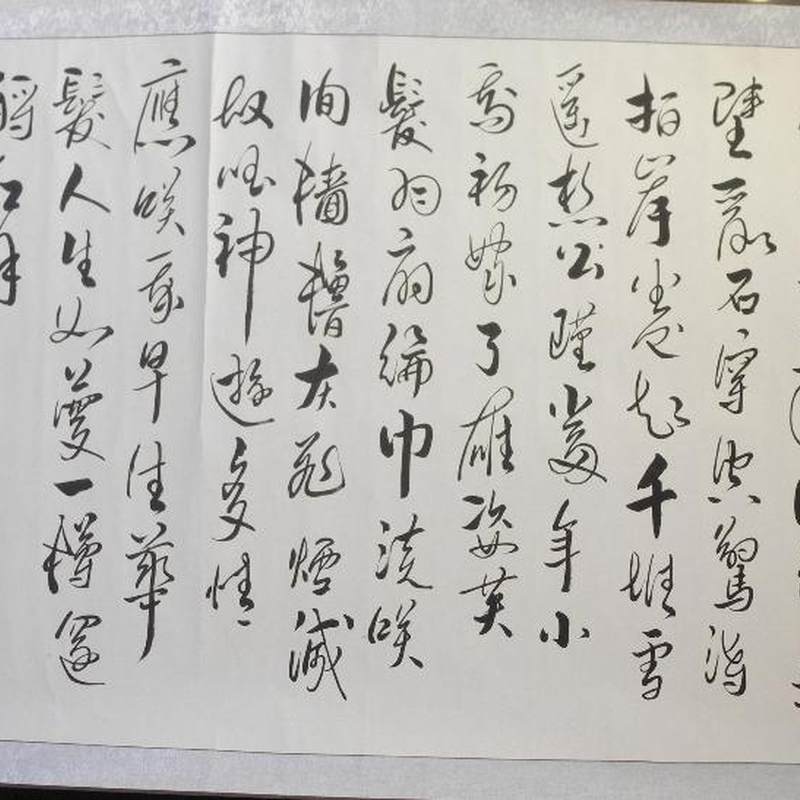 壁亂石穿空驚濤
拍岸卷起千堆雪
遙想公瑾當年小
喬初嫁了雄姿英
髮羽扇綸巾談咲
間檣櫓灰飛煙滅
故國神遊多情
應咲我早生華
髮人生如夢一樽還
江月